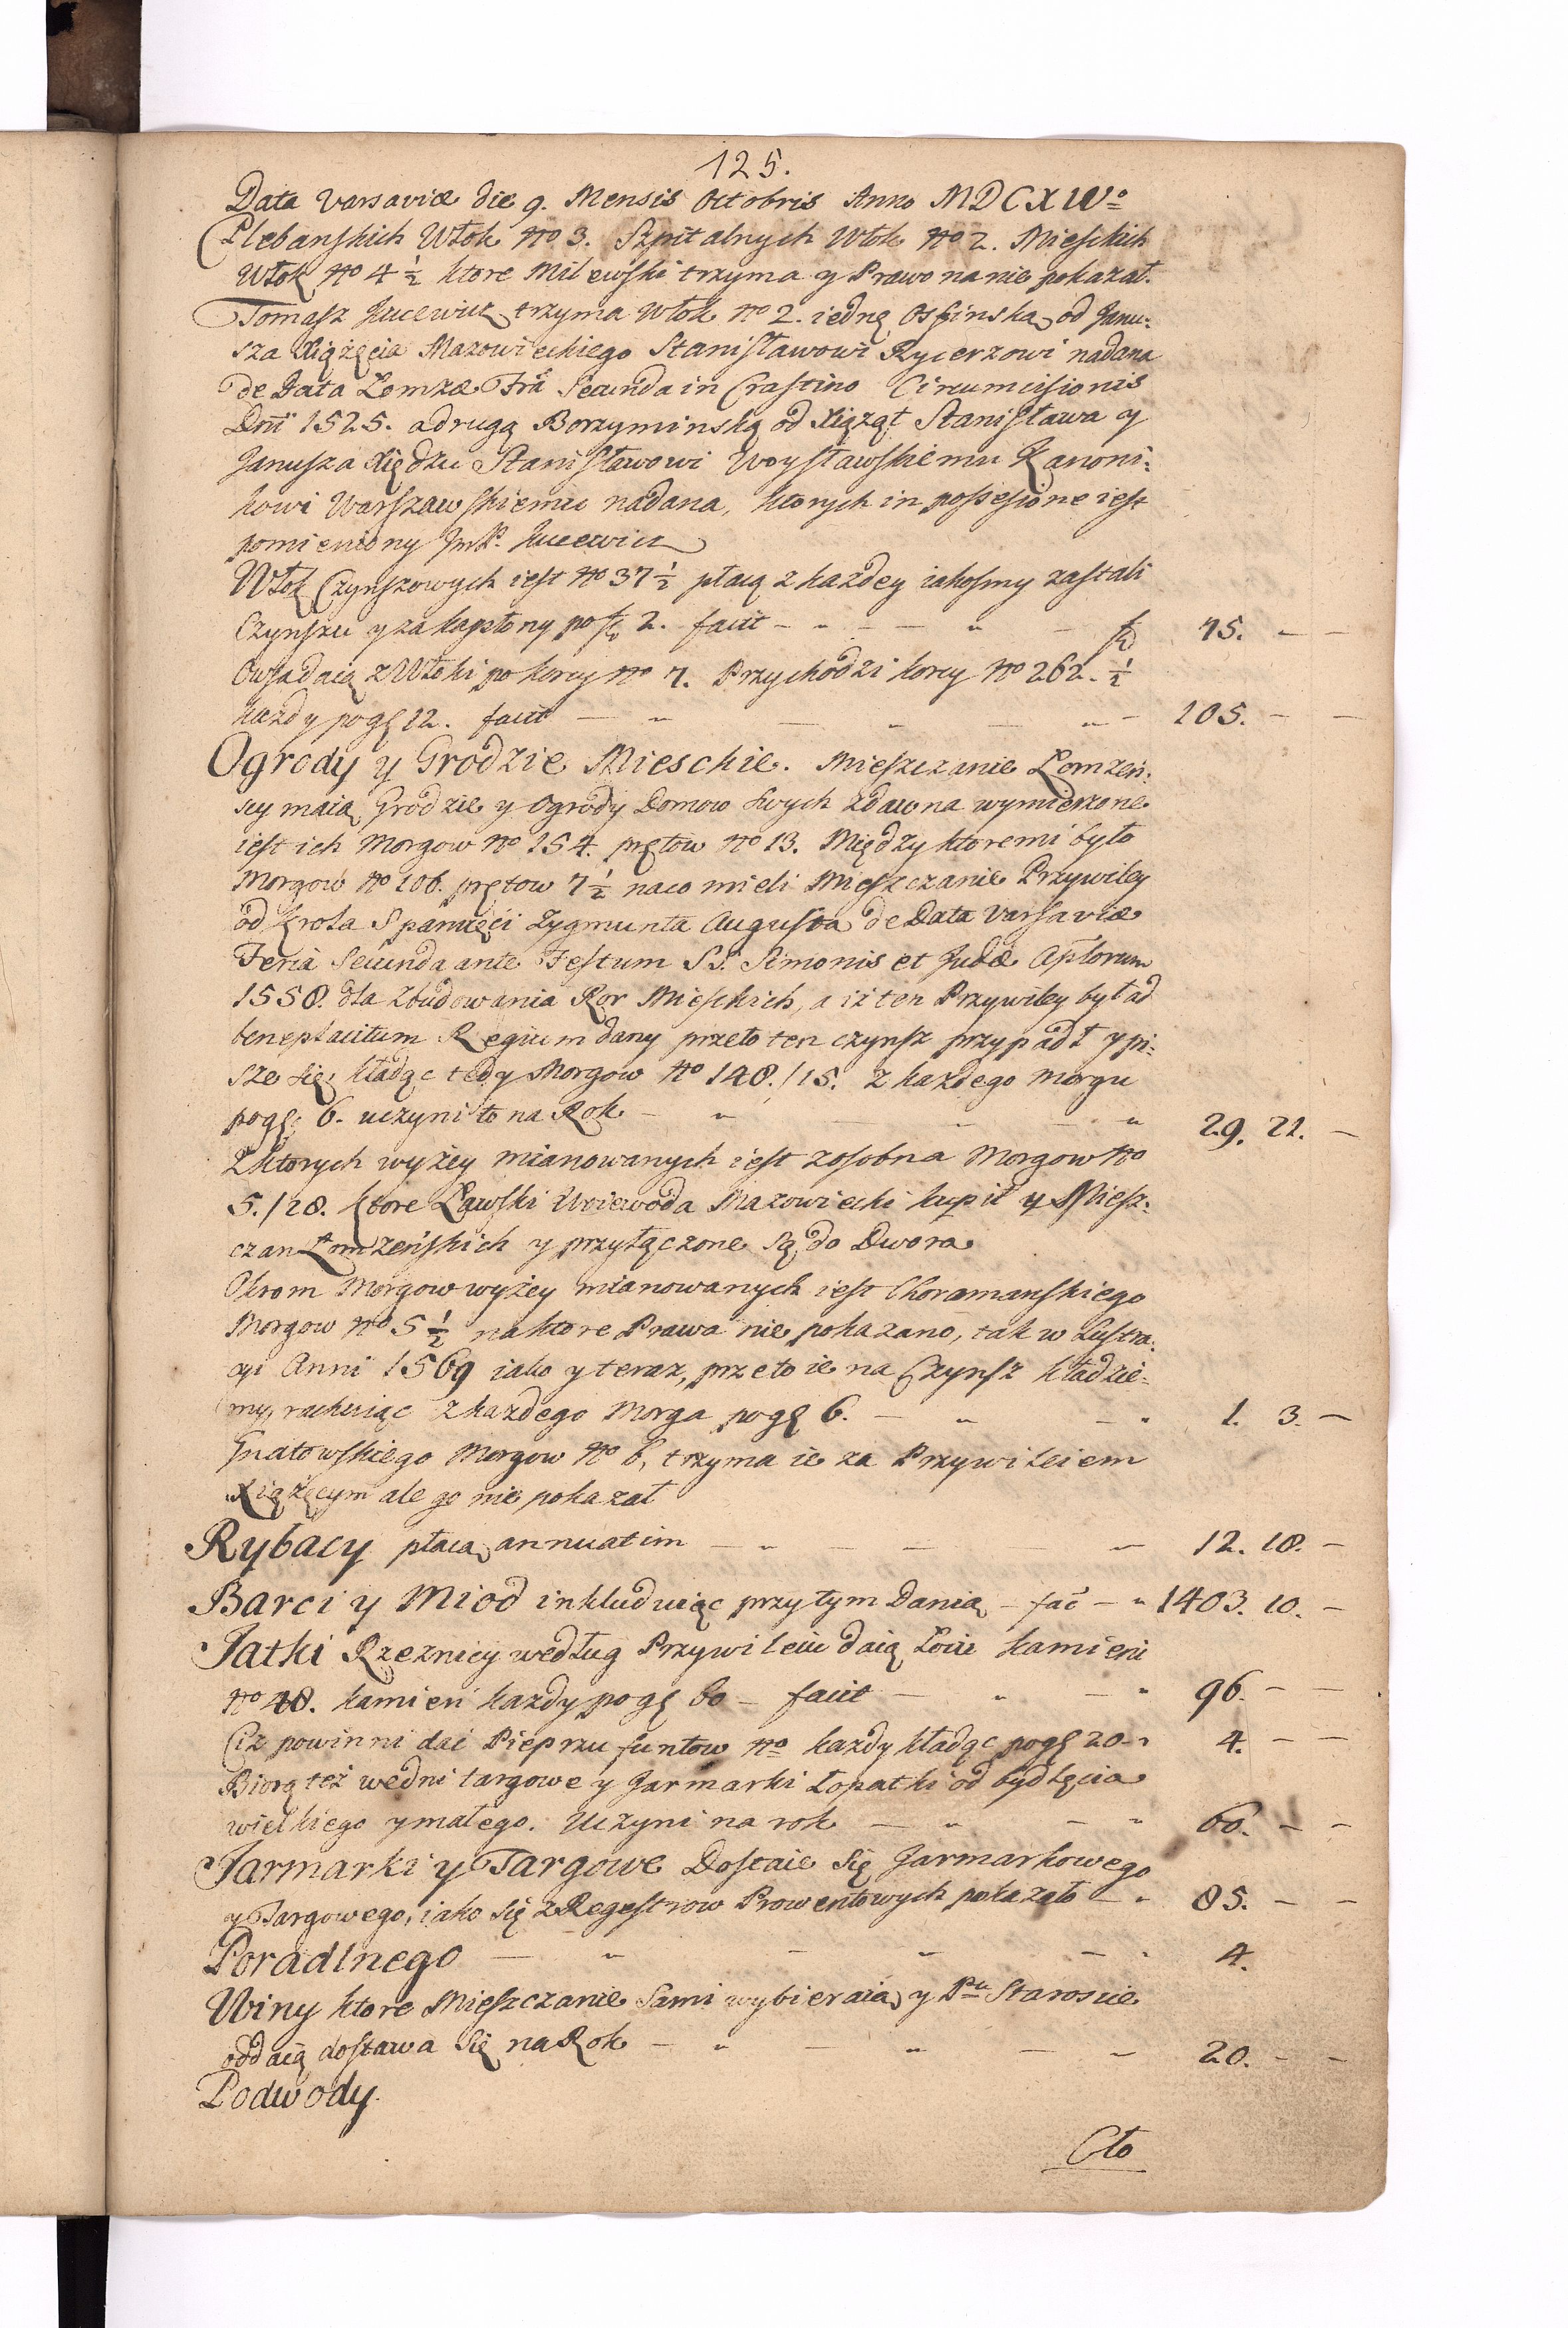 125.
Data Varsaviæ die 9. Mensis Octobris Anno MDCXIVo
Plebanskich Włok No 3. Szpitalnych Włok No 2. Mieskich
Włok No 4 1/2 ktore Milewski trzyma y Prawo na nie pokazał.
Tomasz Jucewicz trzyma Włok No 2. iednę Osfinską od Janu:
sza Xiążęcia Mazowieckiego Stanisławowi Rycerzowi nadana
de Data Łomzæ Fra Secunda in Crastino Circumcisionis
Dni 1525. a drugą Borzyminską od Xiążąt Stanisława y
Janusza Xiędzu Stanisławowi Woysławskiemu Kanoni:
kowi Warszawskiemu nadana, ktorych in possesione iest
pomieniony JmP. Jucewicz
Włok Czynszowych iest No 37 1/2 płacą z kazdey iakosmy zastali
Czynszu y za kapłony po fl 2. facit - " - - " - fl 75. - -
Owsa daią z Włoki po korcy No 7. Przychodzi korcy No 262. 1/2
kazdy po gę 12. facit - " - " - " - 105. - -
Ogrody y Grodzie Mieschie. Mieszczanie Łomzeń:
scy maią Grodzie y Ogrody Domow swych zdawna wymierzone
iest ich Morgow No 154. prętow No 13. Między ktoremi było
Morgow No 106. prętow 7 1/2 na co mieli Mieszczanie Przywiley
od Krola S pamięci Zygmunta Augusta de Data Varsaviæ
Feria Secunda ante Festum S.S. Simonis et Judæ Aplorum
1558. dla zbudowania Ror Mieskich, a iż ten Przywiley był ad
beneplacitum Regium dany przeto ten czynsz przypadł y pi:
sze się kładąc tedy Morgow No 148./15. z kazdego morgu
po gę 6. uczyni to na Rok - " - " - " 29. 21. -
Z ktorych wyżey mianowanych iest zosobna Morgow No
5./28. ktore Ławski Woiewoda Mazowiecki kupił y Miesz:
czan Łomzeńskich y przyłączone są do Dwora
Okrom Morgow wyżey mianowanych iest Choromanskiego
Morgow No 5 1/2 na ktore Prawa nie pokazano, tak w Lustra:
cyi Anni 1569 iako y teraz, przeto ie na Czynsz kładzie-
my, rachuiąc z kazdego Morga po gę 6. - " - " 1. 3. -
Gnatowskiego Morgow No 6, trzyma ie za Przywileiem
Xiążęcym ale go nie pokazał
Rybacy płacą annuatim - " - - " 12. 18. -
Barci y Miod inkluduiąc przytym Danią - fac - " 1403. 10. -
Jatki Rzeznicy według Przywileiu daią Łoiu kamieni
No 48. kamień kazdy po gę 60 - facit - " - " 96. - -
Ciz powinni dać Pieprzu funtow No kazdy kładąc po gę 20 - " 4. - -
Biorą też we dni targowe y Jarmarki Łopatki od bydlęcia
wielkiego y małego. Uczyni na rok - " - " 60. - -
Jarmarki y Targowe Dostaie się Jarmarkowego
y Targowego, iako się z Regestrow Prowentowych pokazało - " 85. - -
Poradlnego - " - " - " 4.
Winy ktore Mieszczanie sami wybieraią y Pu Staroscie
oddaią dostawa się na Rok - " - " - - 20. - -
Podwody.
Cło